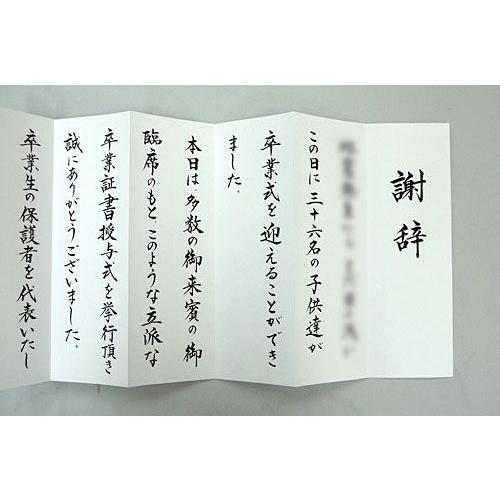 謝辞
この日に三十六名の子供達が
卒業式を迎えることができ
ました。
本日は、多数の御来賓の御
臨席のもと、このような立派な
卒業証書授与式を挙行頂き
誠にありがとうございました。
卒業生の保護者を代表いたし